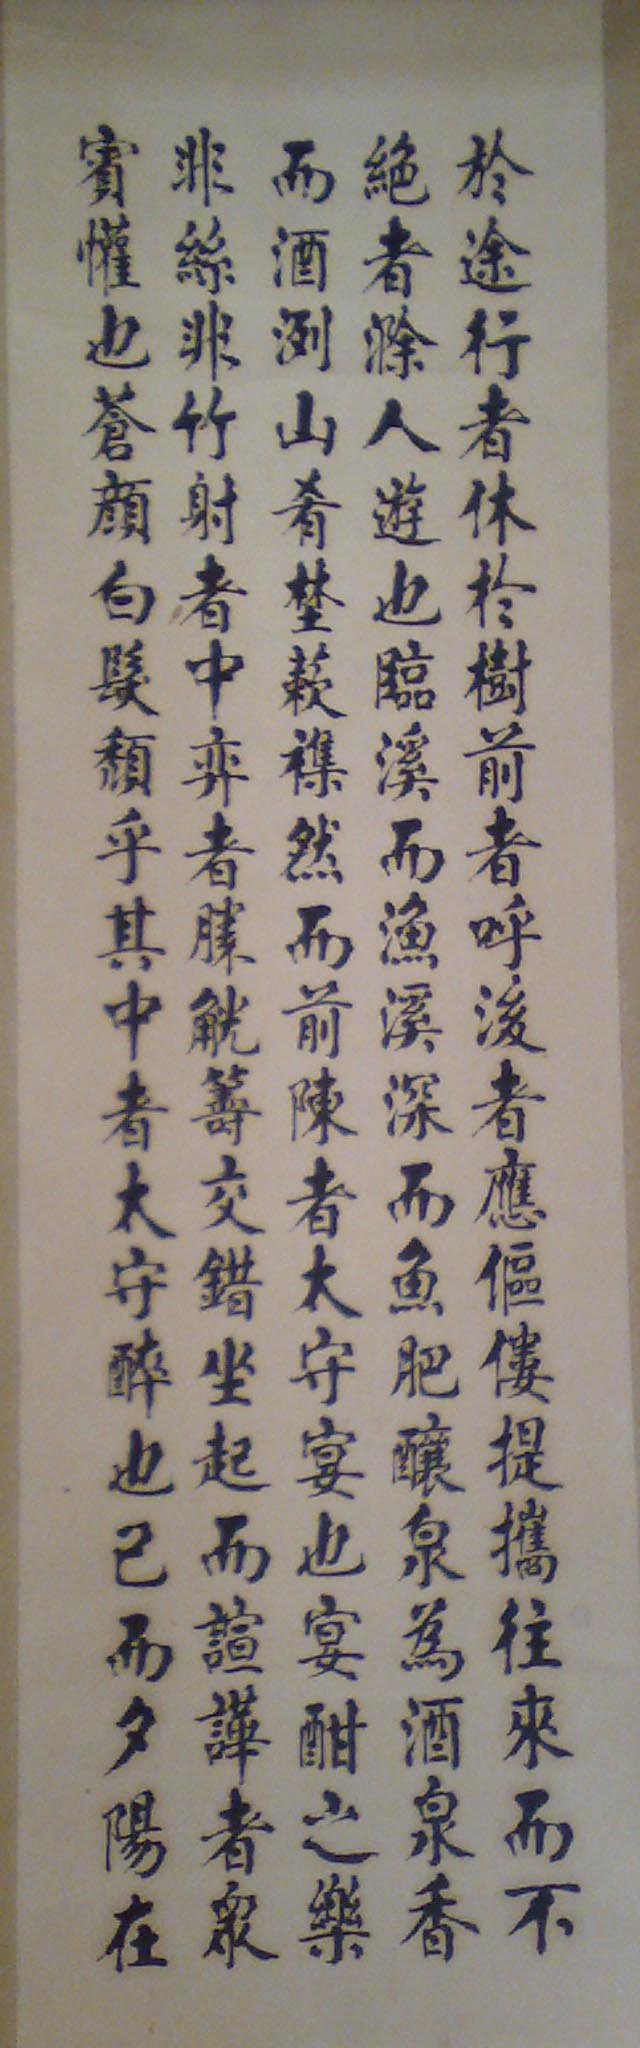 於途行者休於樹前者呼後者應傴僂提攜往來而不
絕者滁人遊也臨溪而漁溪深而魚肥釀泉為酒泉香
而酒洌山肴埜蔌襍然而前陳者太守宴也宴酣之樂
非絲非竹射者中弈者勝觥籌交錯坐起而諠譁者眾
賓懽也蒼顏白髮頹乎其中者太守醉也已而夕陽在